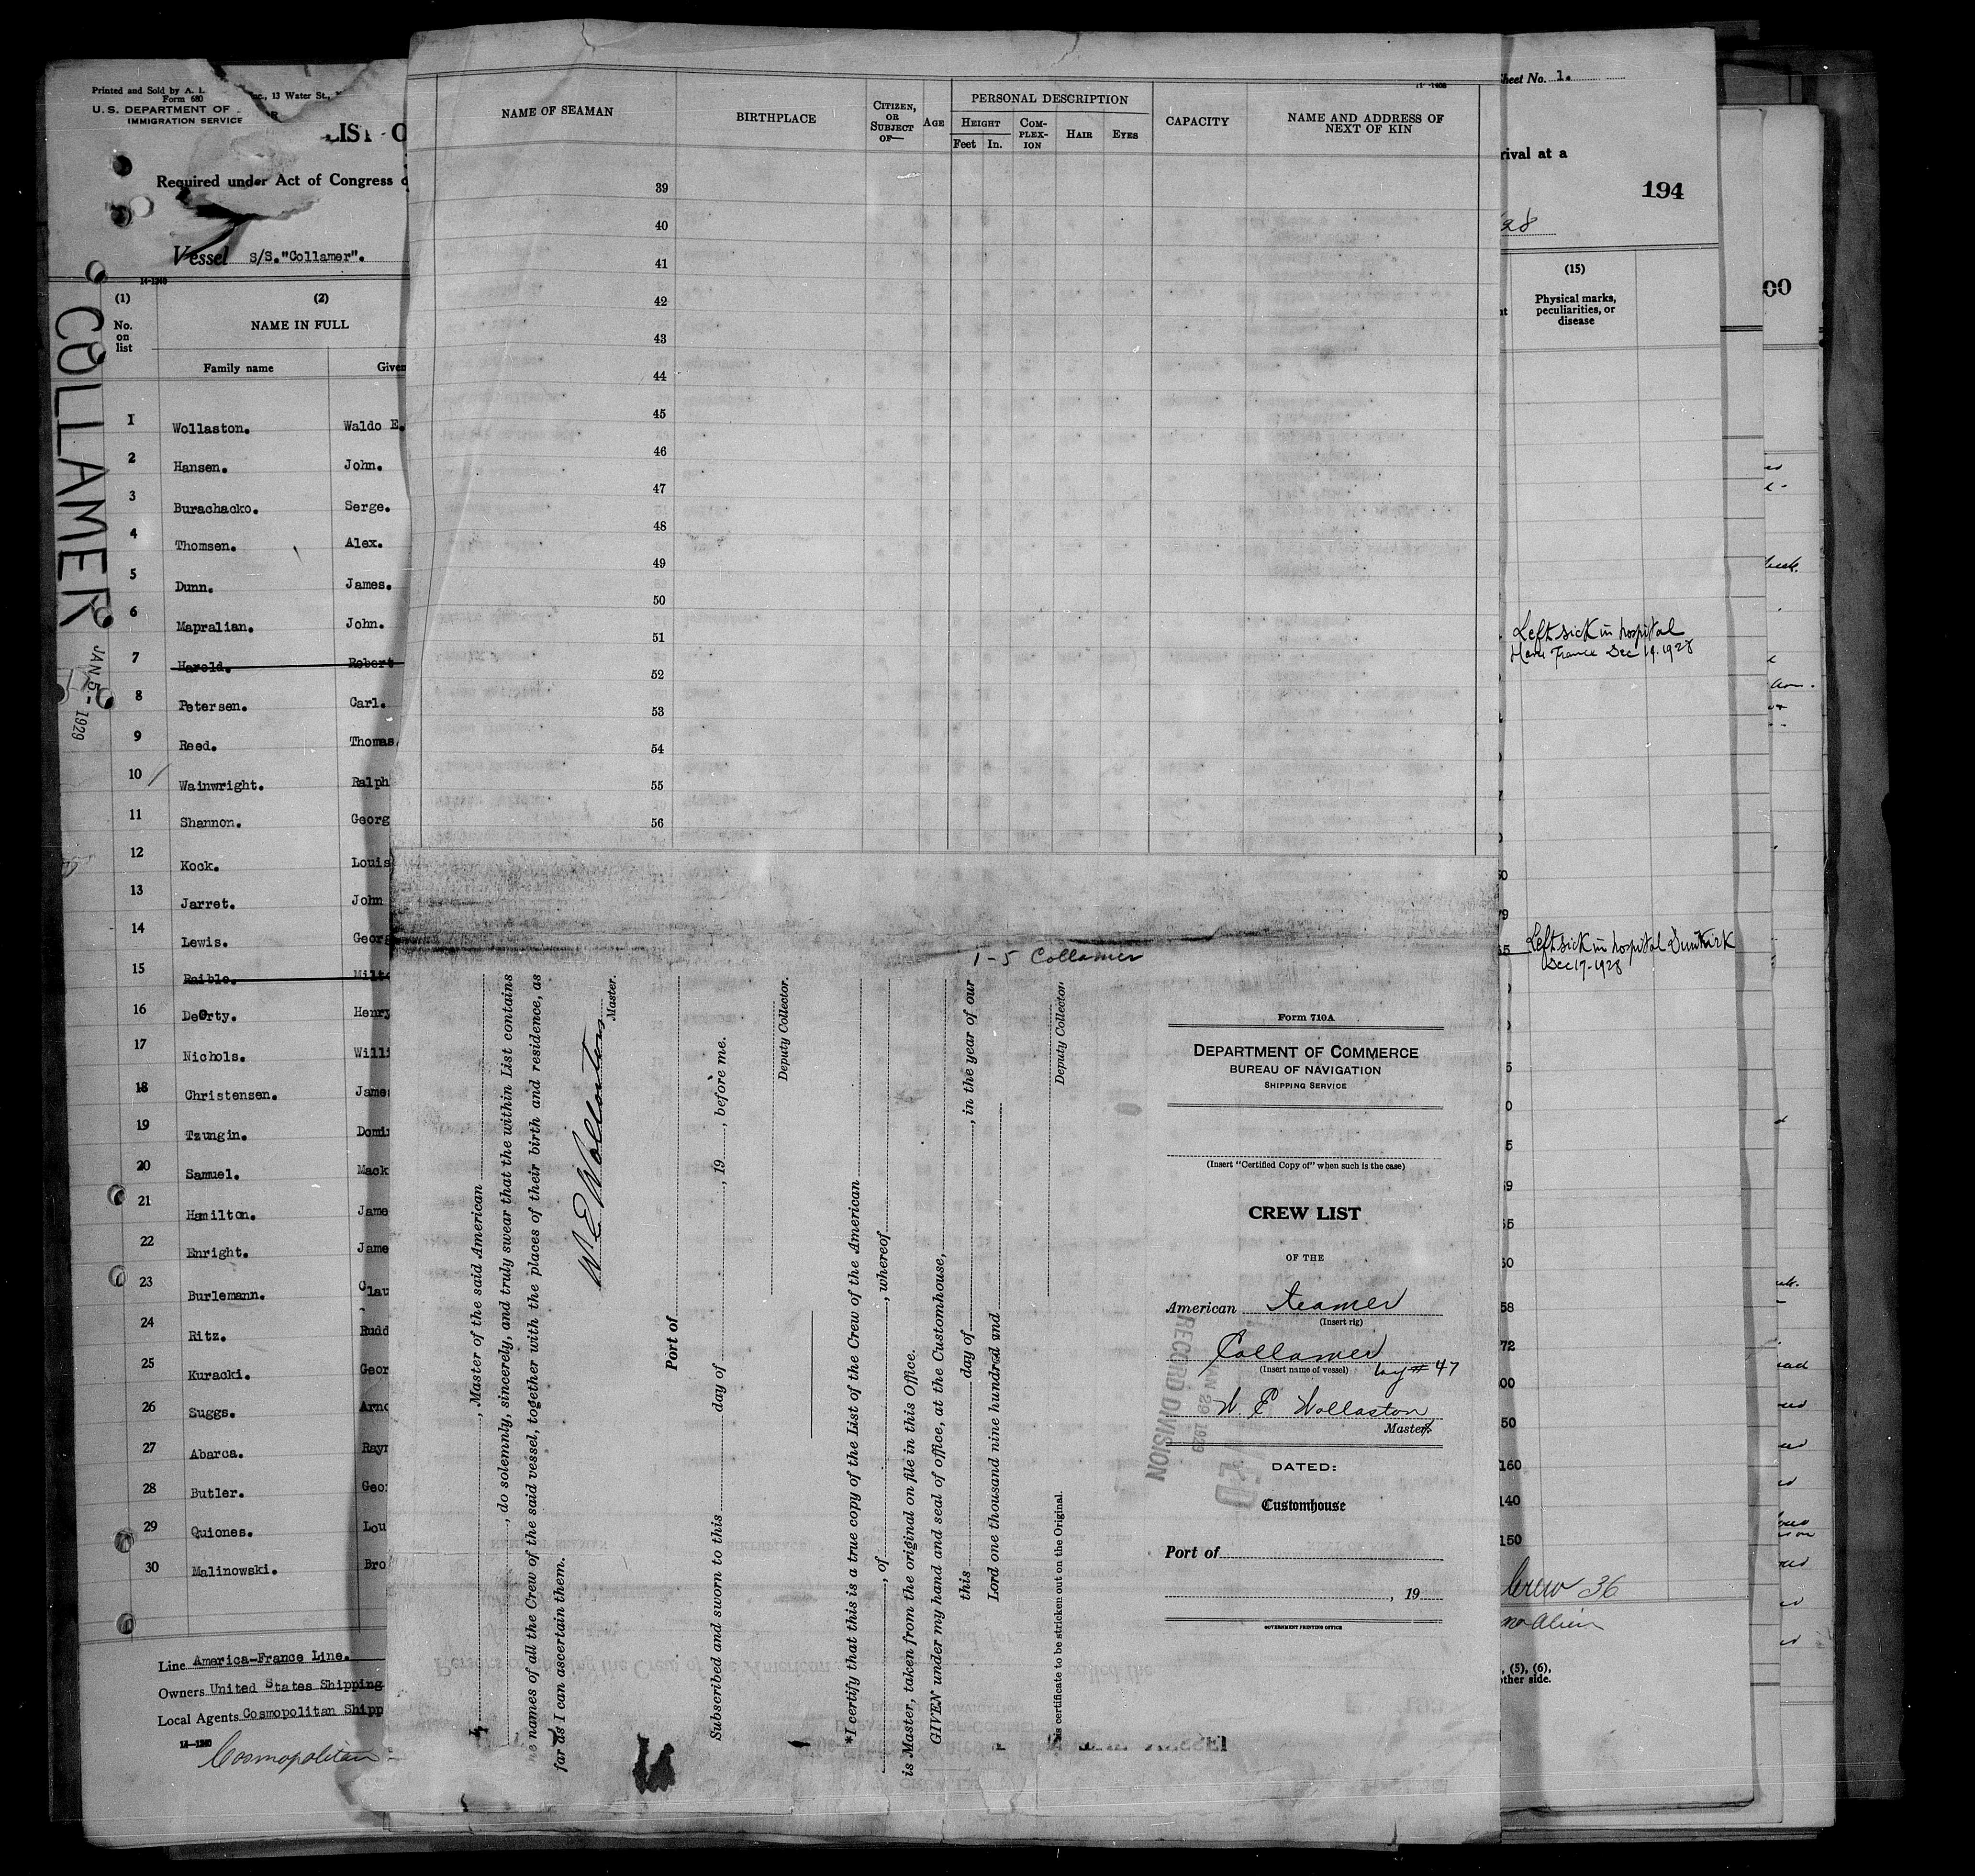 Printed and Sold by A. L.
Inc., 13 Water St.,
Form 680
U. S. DEPARTMENT OF
IMMIGRATION SERVICE
LIST O
Required under Act of Congress
Vessel S/S."Collamer".
14-1240
(1) (2)
No. on list
NAME IN FULL
Family name Given
COLLAMER
JAN 5- 1929
1 Wollaston. Waldo E.
2 Hansen. John.
3 Burachacko. Serge.
4 Thomsen. Alex.
5 Dunn. James.
6 Mapralian. John.
7 Harold. Robert
8 Petersen. Carl.
9 Reed. Thomas.
10 Wainwright. Ralph
11 Shannon. Georg
12 Kock. Louis
13 Jarret. John
14 Lewis. Georg
15 Raible. Milto
16 DeOrty. Henry
17 Nichols. Willi
18 Christensen. James
19 Tzungin. Domin
20 Samuel. Mack
21 Hamilton. Jame
22 Enright. Jame
23 Burlemann. Clau
24 Ritz. Rudd
25 Kuracki. Geor
26 Suggs. Arno
27 Abarca. Raym
28 Butler. Geor
29 Quiones. Lou
30 Malinowski. Bro
Line America-France Line.
Owners United States Shipping
Local Agents Cosmopolitan Shipp
14-1240
Cosmopolitan
NAME OF SEAMAN
BIRTHPLACE
CITIZEN, OR SUBJECT OF—
AGE
PERSONAL DESCRIPTION
HEIGHT
Feet In.
COM-PLEX-ION
HAIR
EYES
CAPACITY
NAME AND ADDRESS OF NEXT OF KIN
39
40
41
42
43
44
45
46
47
48
49
50
51
52
53
54
55
56
1-5 Collamer
, Master of the said American
, do solemnly, sincerely, and truly swear that the within List contains
the names of all the Crew of the said vessel, together with the places of their birth and residence, as
far as I can ascertain them.
W E Wollaston
Master.
Port of
Subscribed and sworn to this day of , 19 , before me.
Deputy Collector.
*I certify that this is a true copy of the List of the Crew of the American
, of , whereof
is Master, taken from the original on file in this Office.
GIVEN under my hand and seal of office, at the Customhouse,
this day of , in the year of our
Lord one thousand nine hundred and
Deputy Collector.
is certificate to be stricken out on the Original.
Form 710A
DEPARTMENT OF COMMERCE
BUREAU OF NAVIGATION
SHIPPING SERVICE
(Insert "Certified Copy of" when such is the case)
CREW LIST
OF THE
American Steamer
(Insert rig)
Collamer
(Insert name of vessel) Voy # 47
W. E Wollaston
Master.
RECORD DIVISION
JAN 29 1929
DATED:
Customhouse
Port of
, 19
GOVERNMENT PRINTING OFFICE
Sheet No. 1.
rival at a
194
28
(15)
Physical marks, peculiarities, or disease
00
Left sick in hospital
Havre France Dec 19.1928
Left sick in hospital Dunkirk
Dec 17-1928
Crew 36
no Alien
, (5), (6),
other side.